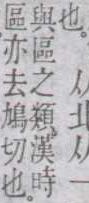 也。从北从一
與區之類。漢時
區亦去鳩切也。